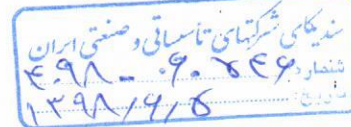 سندیکای شرکتهای تأسیساتی و صنعتی ایران
شماره: ۴۰۹۸-۰۶۰۲۴۶
تاریخ: ۱۳۹۸/۶/۵